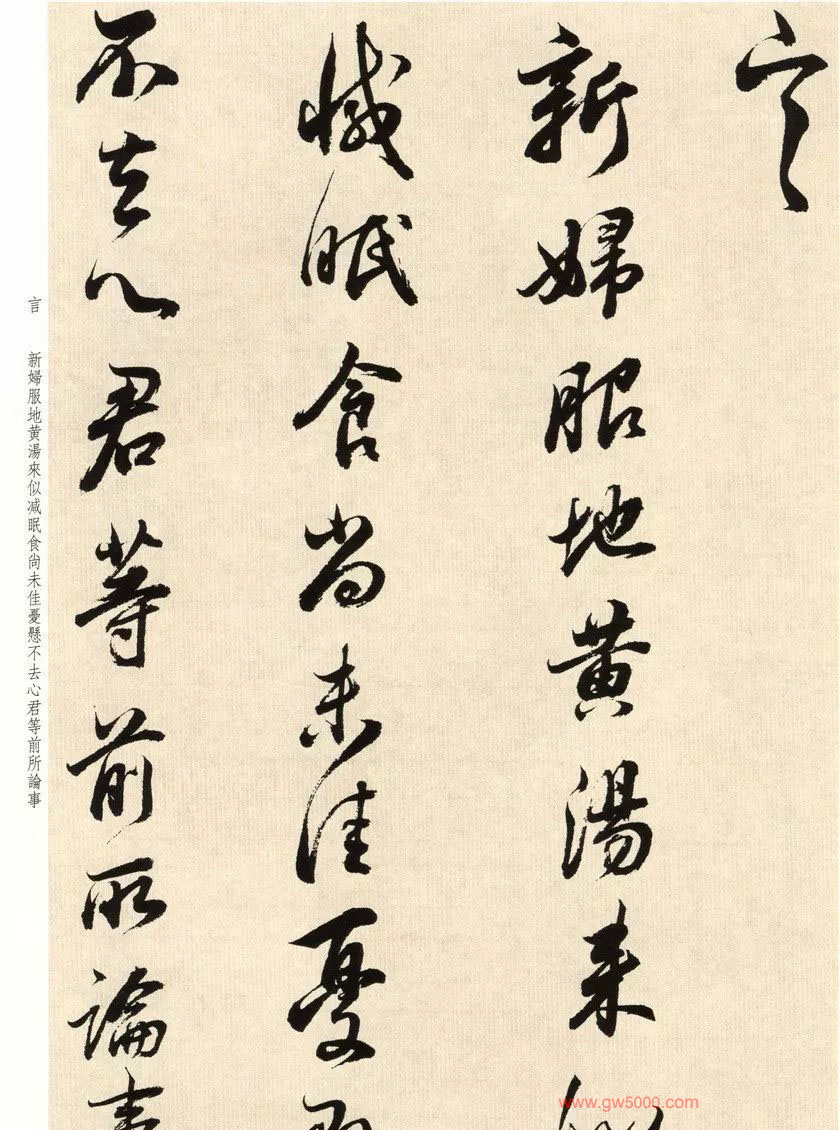 言
新婦服地黄湯来似
减眠食尚未佳憂
不去心君等前所論事
言 新婦服地黄湯來似减眠食尚未佳憂懸不去心君等前所論事
www.gw5000.com